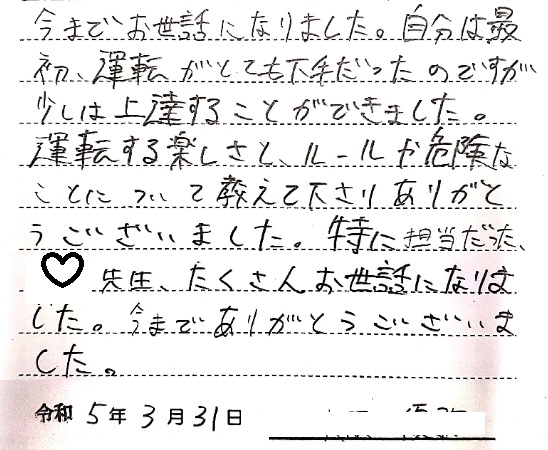 今までお世話になりました。自分は最
初、運転がとても下手だったのですが
少しは上達することができました。
運転する楽しさと、ルールや危険な
ことについて教えて下さりありがと
うございました。特に担当だった、
先生、たくさんお世話になりま
した。今までありがとうございま
した。
令和 5年 3月 31日